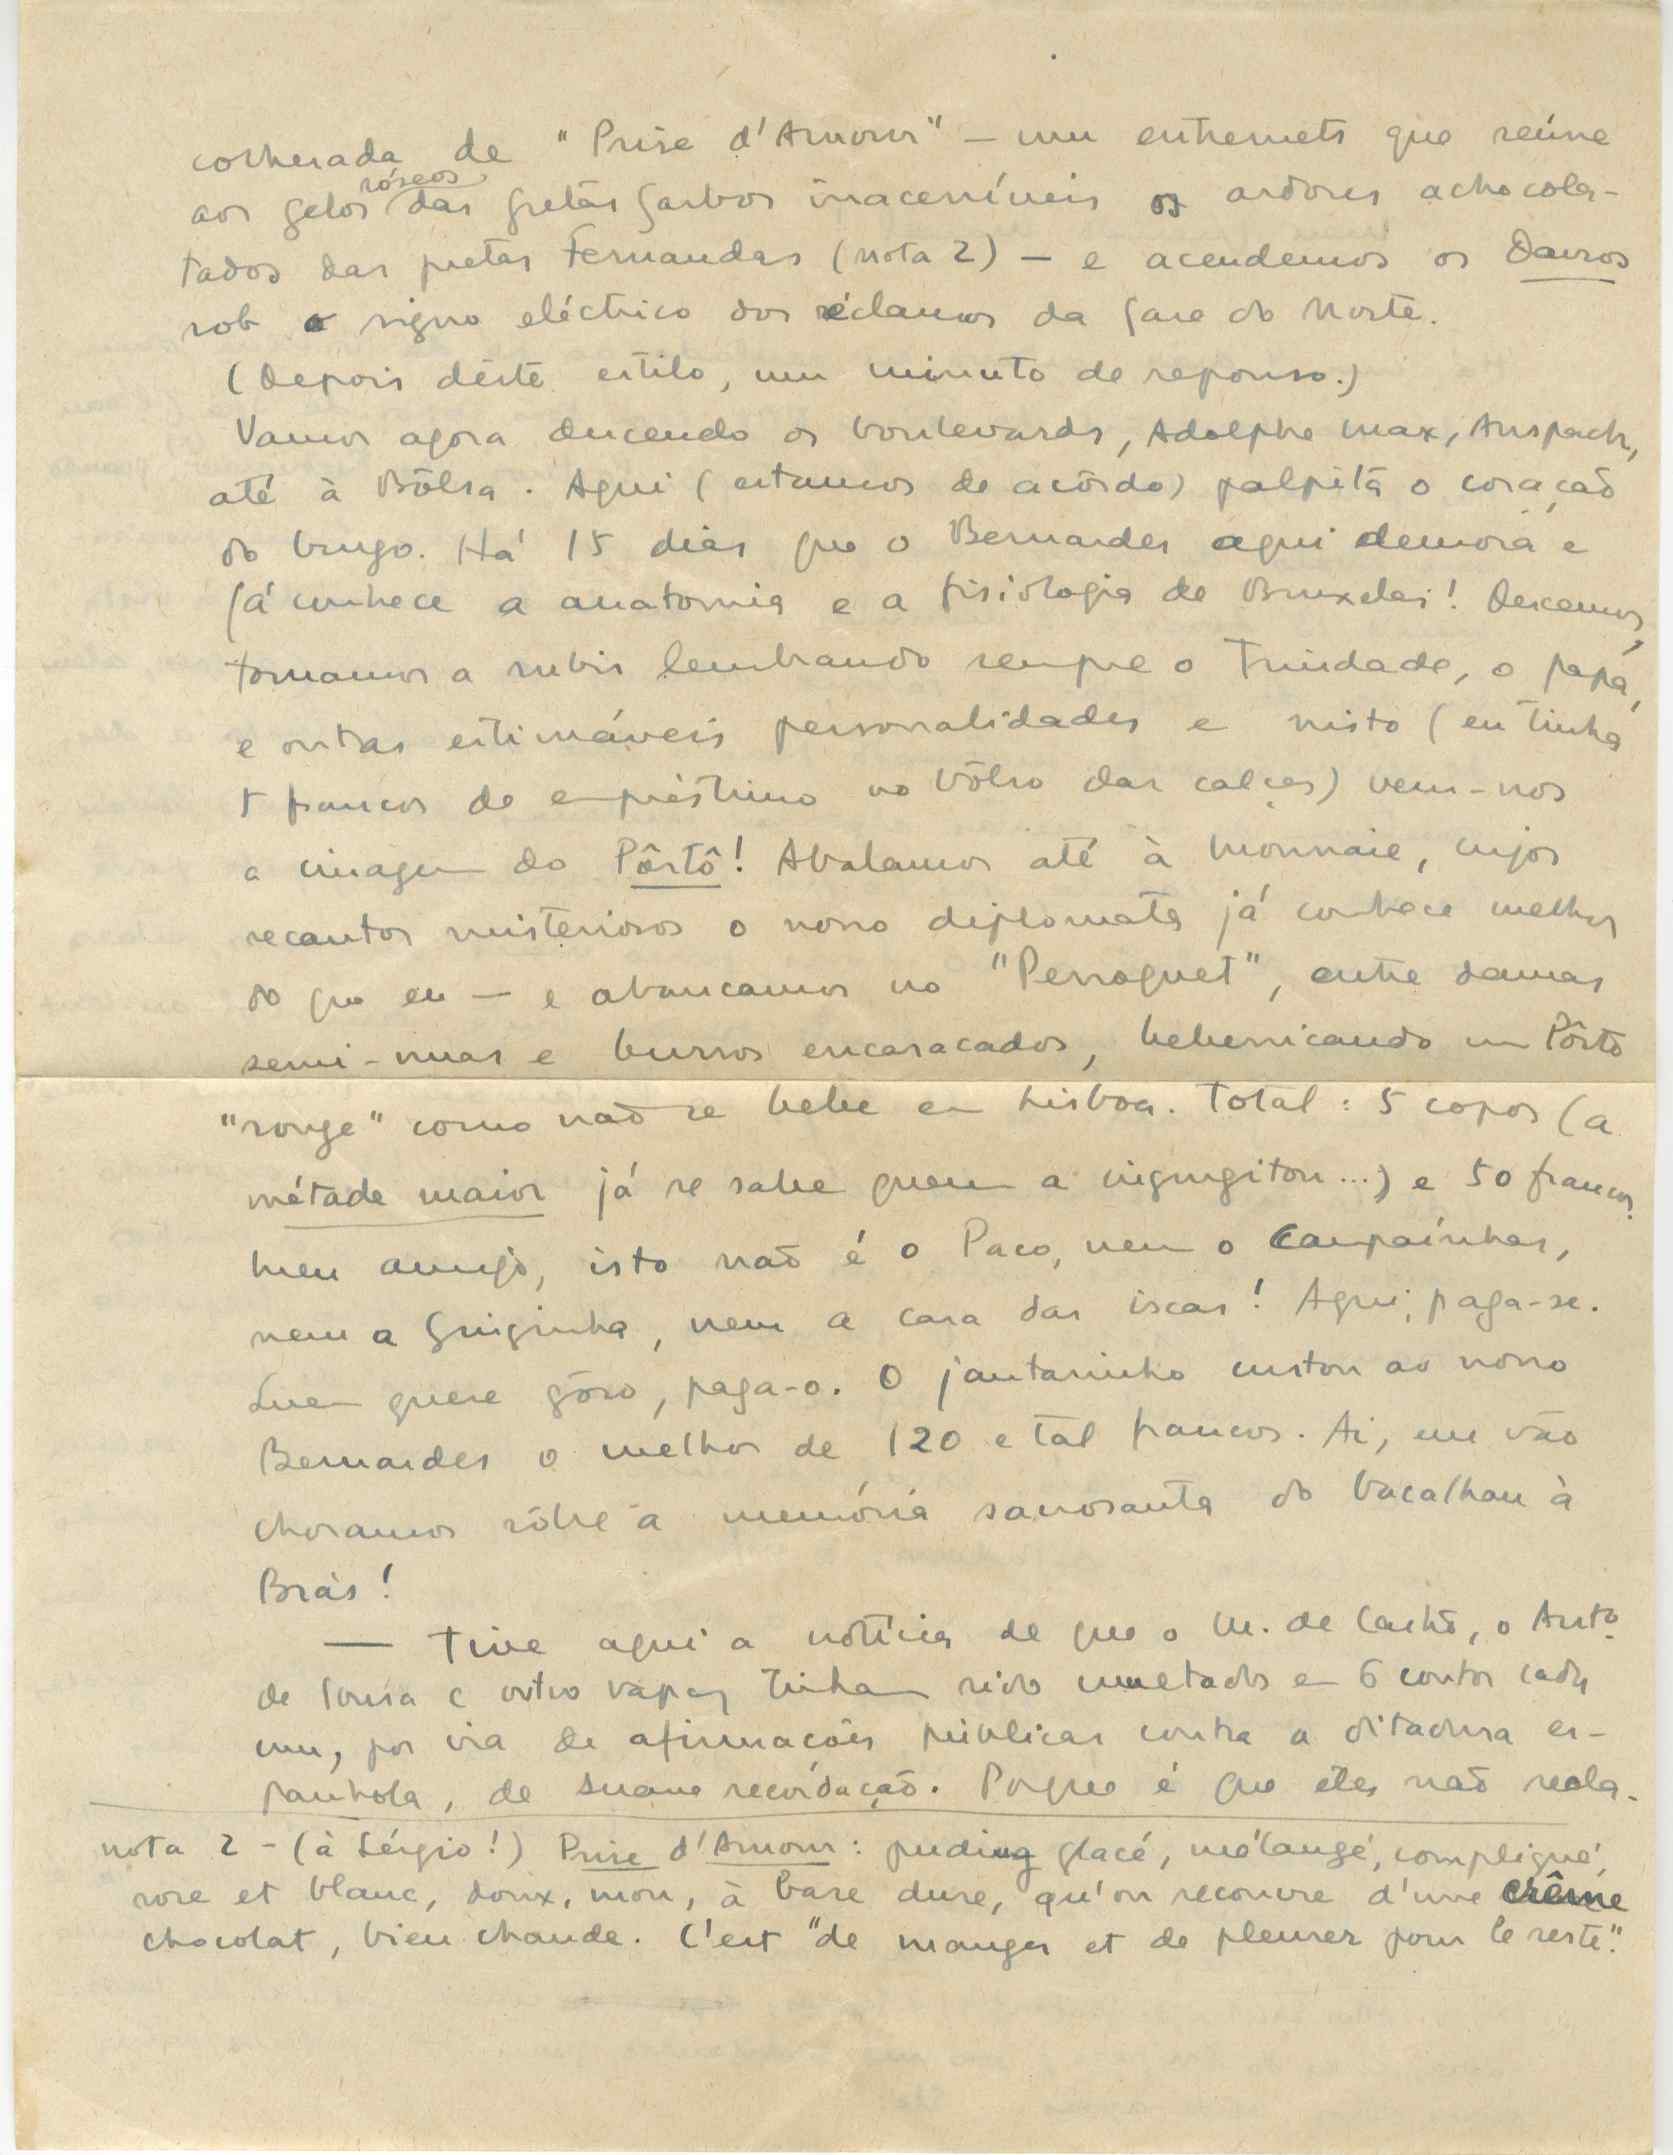 colherada de "Prise d'Amour" – um entremets que reúne
aos gelos róseos das Gretas Garbos inacessíveis os ardores achocola-
tados das pretas Fernandas (nota 2) – e acendemos os Davros
sob o signo eléctrico dos réclamos da Gare do Norte.
(Depois dêste estilo, um minuto de repouso.)
Vamos agora descendo os boulevards, Adolphe Max, Anspach,
até à Bôlsa. Aqui (estamos de acôrdo) palpita o coração
do burgo. Há 15 dias que o Bernardes aqui demora e
já conhece a anatomia e a fisiologia de Bruxelas! Descemos,
tornamos a subir lembrando sempre o Trindade, o papá,
e outras estimáveis personalidades e nisto (eu tinha
5 francos de empréstimo no bôlso das calças) vem-nos
a imagem do Pôrtô! Abalamos até à Monnaie, cujos
recantos misteriosos o nosso diplomata já conhece melhor
do que eu – e abancamos no "Perroquet", entre damas
semi-nuas e burros encasacados, beberricando um Pôrto
"rouge" como não se bebe em Lisboa. Total: 5 copos (a
métade maior já se sabe quem a ingurgitou...) e 50 francos.
Meu amigo, isto não é o Paco, nem o Campaínhas,
nem a Ginginha, nem a casa das iscas! Aqui, paga-se.
Quem quere gôso, paga-o. O jantarinho custou ao nosso
Bernardes o melhor de 120 e tal francos. Ai, em vão
choramos sôbre a memória saudosa do bacalhau à
Brás!
— Tive aqui a notícia de que o M. de Castro, o Antº
de Sousa e outro rapaz tinham sido multados em 6 contos cada
um, por via de afirmações públicas contra a ditadura es-
panhola, de suave recordação. Porque é que êles não recla-
nota 2 – (à Sérgio!) Prise d'Amour: puding glacé, mélangé, compliqué,
rose et blanc, doux, mou, à base dure, qu'on recouvre d'une crême
chocolat, bien chaude. C'est "de manger et de pleurer pour le reste".